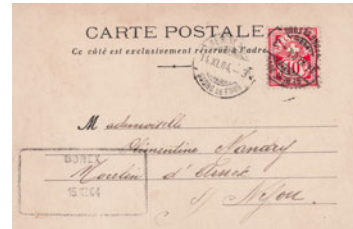 CARTE POSTALE
Ce côté est exclusivement réservé à l'adre
14.XI.04.-3
10
Mademoiselle
Clémentine Nandry
Moulin d'
s/ Nyon.
BOREX
15.XI.04